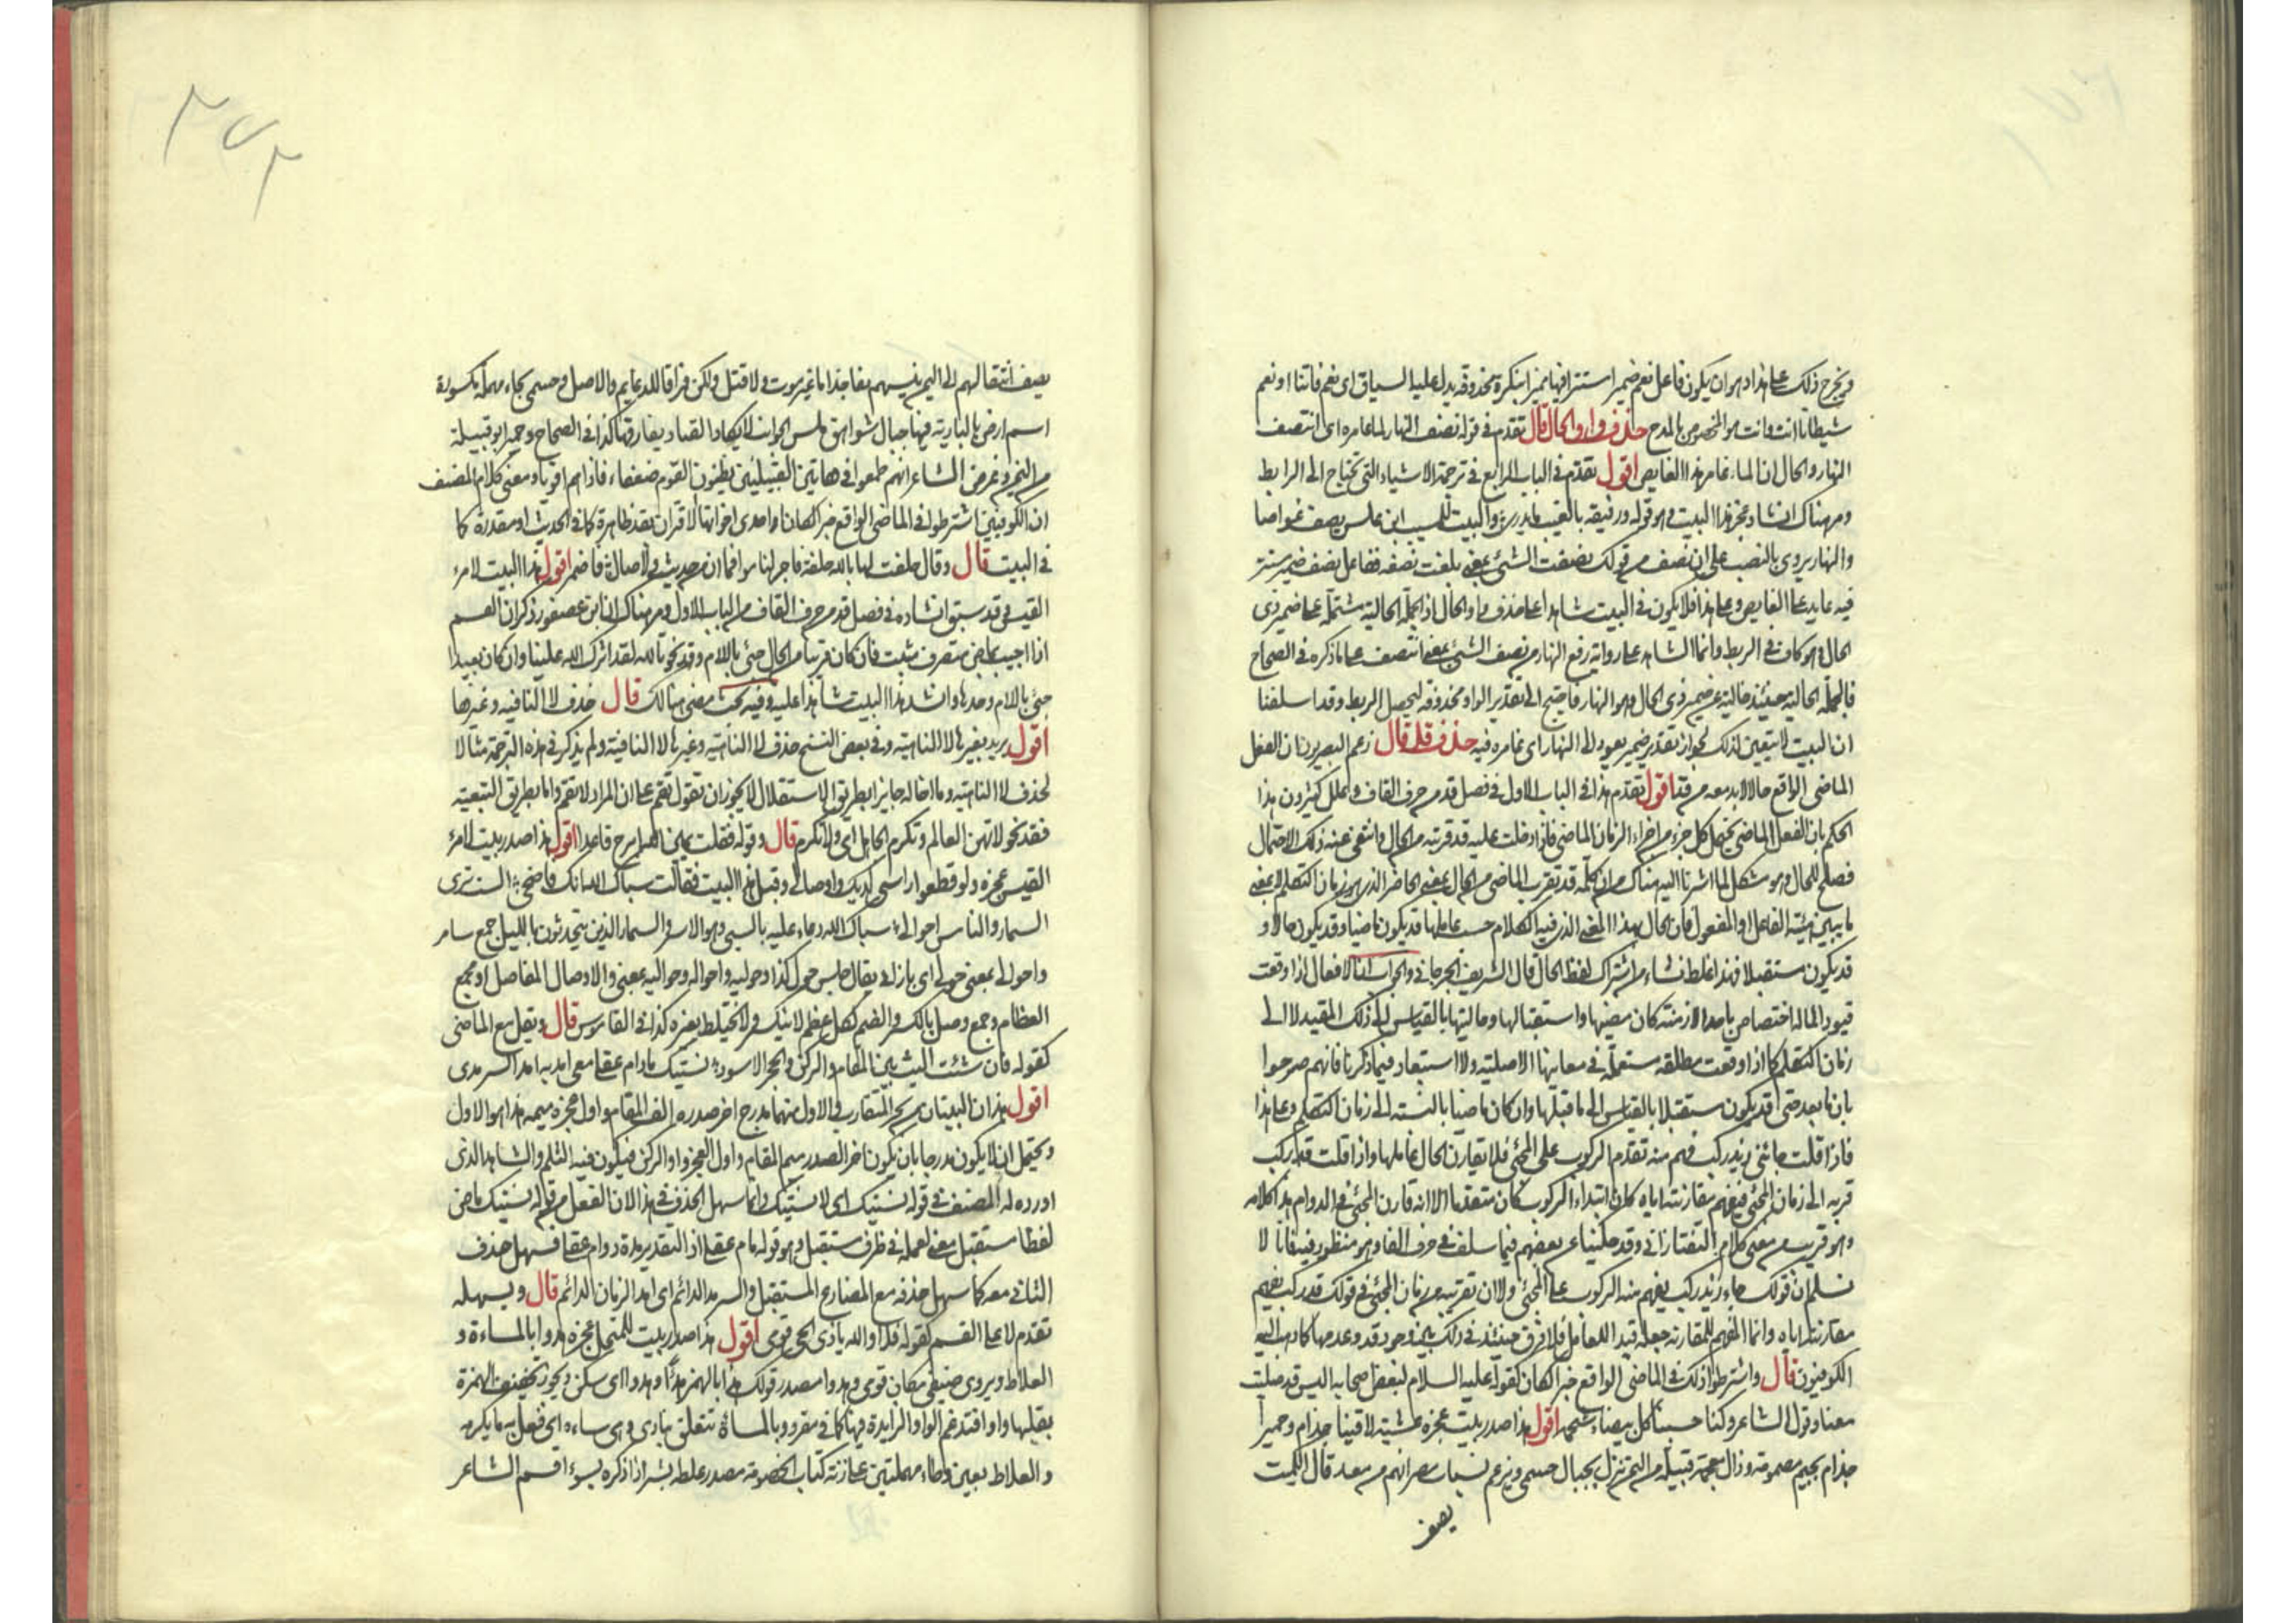 ويخرج ذلك على هذا وهو ان يكون فاعل نعم ضمير استتر فيها مميزا بنكرة محذوفة يدل عليها السياق اى نعم فاتنا او نعم
شيطانا انت وانت هو المخصوص بالمدح حذف واو الحال قال تقدم فى قوله نصف النهار الماء غامره اى انتصف
النهار والحال ان الماء غامر هذا الغايص اقول تقدم فى الباب الرابع فى ترجمة الاشياء التى تحتاج الى الرابط
ومر هناك انشاد عجز هذا البيت وهو قوله ورفيقه بالغيب ما يدرى والبيت للمسيب ابن علس يصف غواصا
والنهار يروى بالنصب على ان نصف من قولك نصفت الشئ بمعنى بلغت نصفه ففاعل نصف ضمير مستتر
فيه عايد على الغايص وعلى هذا فلا يكون فى البيت شاهدا على حذف واو الحال اذ الجملة الحالية مشتملة على ضمير ذى
الحال وهو كاف فى الربط وانما الشاهد على رواية رفع النهار من نصف الشئ بمعنى انتصف على ما ذكره فى الصحاح
فالجملة الحالية حينئذ خالية عن ضمير ذى الحال وهو النهار فاحتيج الى تقدير الواو محذوفة ليحصل الربط وقد اسلفنا
ان البيت لا يتعين لذلك لجواز تقدير ضمير يعود الى النهار اى غامره فيه حذف قد قال زعم البصريون ان الفعل
الماضى الواقع حالا لابد معه من قد اقول تقدم هذا فى الباب الاول فى فصل قد من حرف القاف وعلل كثيرون هذا
الحكم بان الفعل الماضى يحتمل كل جزء من اجزاء الزمان الماضى فاذا دخلت عليه قد قربته من الحال وانتفى عنه ذلك الاحتمال
فصلح للحال وهو مشكل لما اشرنا اليه هناك من ان كلمة قد تقرب الماضى من الحال بمعنى الحاضر الذى هو زمان التكلم لا بمعنى
ما يبين هيئة الفاعل او المفعول فان الحال بهذا المعنى الذى فيه الكلام حسب عاملها قد يكون ماضيا وقد يكون حالا و
قد يكون مستقبلا فهذا غلط نشاء من اشتراك لفظ الحال قال الشريف الجرجانى والجواب ان الافعال اذا وقعت
قيودا لما له اختصاص باحد الازمنة كان مضيها واستقبالها وحاليتها بالقياس الى ذلك المقيد لا الى
زمان التكلم كما اذا وقعت مطلقة مستعملة فى معانيها الاصلية ولا استبعاد فيما ذكرنا فانهم صرحوا
بان ما بعد حتى قد يكون مستقبلا بالقياس الى ما قبلها وان كان ماضيا بالنسبة الى زمان التكلم وعلى هذا
فاذا قلت جائنى زيد ركب فهم منه تقدم الركوب على المجئ فلا يقارن الحال عاملها واذا قلت قد ركب
قربه الى زمان المجئ فيفهم مقارنته اياه كان ابتداء الركوب كان متقدما الا انه قارن المجئ فى الدوام هذا كلامه
وهو قريب من معنى كلام التفتازانى وقد حكيناه عن بعضهم فيما سلف فى حرف القاف وهو منظور فيه فانا لا
نسلم ان قولك جاء زيد ركب يفهم منه الركوب على المجئ ولا ان تقريبه من زمان المجئ فى قولك قد ركب يفهم
مقارنته اياه وانما المفهم للمقارنة جعله قيدا للعامل فلا فرق حينئذ فى ذلك بين وجود قد وعدمها كما ذهب اليه
الكوفيون قال واشترطوا ذلك فى الماضى الواقع خبرا لكان كقوله عليه السلام لبعض صحابه اليس قد صليت
معنا وقول الشاعر وكنا حسبنا كل بيضاء شحمة اقول هذا صدر بيت عجزه عشية لاقينا جذام وحميرا
جذام بجيم مضمومة وذال معجمة قبيلة من اليمن تنزل بجبال حسمى ويزعم نساب مضر انهم من معد قال الكميت
يصف
يصف انتقالهم الى اليمن بنسبهم بغا جذاما غير موت ولا قتل ولكن فراقا للدعايم والاصل وحسمى بحاء مهملة مكسورة
اسم ارض بالبادية فيها جبال شواهق ملس الجوانب لا يكاد القتام يفارقها كذا فى الصحاح وحمير ابو قبيلة
من اليمن وغرض الشاعر انهم طمعوا فى هاتين القبيلتين يظنون القوم ضعفاء فاذا هم اقوياء ومعنى كلام المصنف
ان الكوفيين اشترطوا فى الماضى الواقع خبرا لكان او احدى اخواتها الاقتران بقد ظاهرة كما فى الحديث او مقدرة كما
فى البيت قال وقال حلفت لها بالله حلفة فاجر لناموا فما ان من حديث ولا صال فاضمر اقول هذا البيت لامرء
القيس وقد سبق انشاده فى فصل قد من حرف القاف من الباب الاول ومر هناك ان ابن عصفور ذكر ان القسم
اذا اجيب بماض متصرف مثبت فان كان قريبا من الحال جئ باللام وقد نحو تالله لقد اثرك الله علينا وان كان بعيدا
جئ باللام وحدها وانشد هذا البيت شاهدا عليه وفيه بحث مضى هنالك قال حذف لا النافيه وغيرها
اقول يريد بغيرها لا الناهيه وفى بعض النسخ حذف لا الناهيه وغيرها لا النافية ولم يذكر فى هذه الترجمة مثالا
لحذف لا الناهيه وما اخاله جايزا بطريق الاستقلال لا يجوز ان تقول تقم على ان المراد لا تقم واما بطريق التبعية
فقد نحو لا تهن العالم وتكرم الجاهل اى ولا تكرم قال وقوله فقلت يمين الله ابرح قاعدا اقول هذا صدر بيت لامرء
القيس عجزه ولو قطعوا راسى لديك واوصالى وقبل هذا البيت فقالت سباك الله انك فاضحى الست ترى
السمار والناس احوالى سباك الله دعاء عليه بالسبى وهو الاسر والسمار الذين يتحدثون بالليل جمع سامر
واحوالى بمعنى حولى اى بازائى يقال جلس حول كذا وحوليه واحواله وحواليه بمعنى والاوصال المفاصل او مجمع
العظام وجمع وصل بالكسر والضم لكل عظم لا ينكسر ولا يختلط بغيره كذا فى القاموس قال ويقل مع الماضى
كقوله فان شئت اليت بين المقام والركن والحجر الاسود نسيتك مادام عقلى معى امد به امد السرمدى
اقول هذان البيتان من بحر المتقارب والاول منهما مدرج اخر صدره الف المقام واول عجزه ميمه هذا هو الاول
ويحتمل ان لا يكون مدرجا بان يكون اخر الصدر ميم المقام واول العجز واو الركن فيكون فيه الثلم والشاهد الذى
اورده له المصنف فى قوله نسيتك اى لا نسيتك وانما سهل الحذف فى هذا لان الفعل من قوله نسيتك ماض
لفظا مستقبل معنى لعمله فى ظرف مستقبل وهو قوله مادام عقلى اذ التقدير مدة دوام عقلى فسهل حذف
الثانى معه كما سهل حذفه مع المضارع المستقبل والسرمد الدائم اى امد الزمان الدائم قال ويسهله
تقدم لا على القسم كقوله فلا والله نادى الحى قومى اقول هذا صدر بيت للمتنخل عجزه هدوا بالمساءة و
العلاط ويروى ضيفى مكان قومى وهدوا مصدر قولك هدا بالهمز هدءا وهدوا اى سكن ويجوز تخفيف الهمزة
بقلبها واوا فتدغم الواو الزايدة فيها كما فى مقرو وبالمساءة تتعلق بنادى وهى ساءه اى فعل به ما يكره
والعلاط بعين وطاء مهملتين على زنة كتاب الخصومة مصدر علطه بشر اذا ذكره بسوء اقسم الشاعر